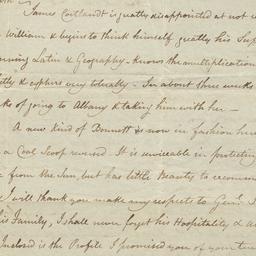 James Cortlandt is greatly disappointed at not re
William & begins to think himself greatly his Sup
rning Latin & Geography - knows the multiplication
tty & copys very tolerably - In about three weeks
ks of going to Albany & taking him with her -
A new kind of Bonnett is now in fashion here
a Coal Scoop revised. It is serviceable in protecting
from the Sun, but has little Beauty to recomm
I will thank you make my respects to Genl. S
his Family, I shall never forget his Hospitality & a
Inclosed is the Profile I promised you of your